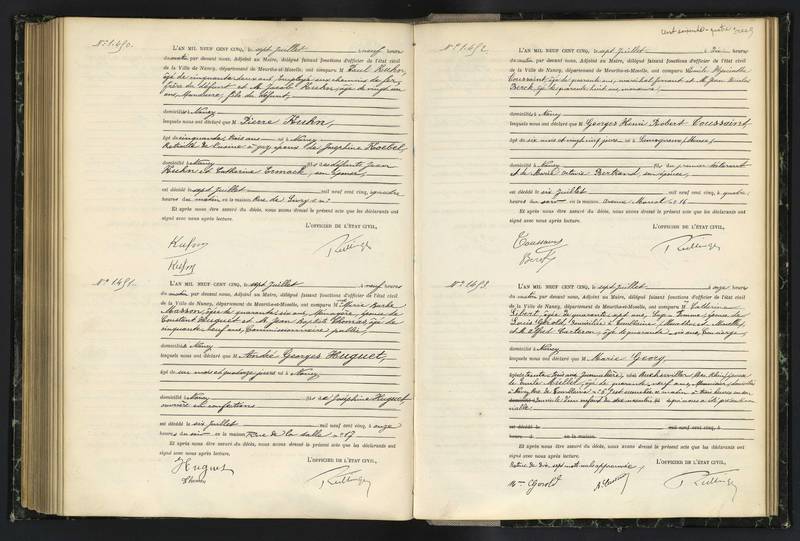 N° 1490.
L'AN MIL NEUF CENT CINQ, le sept Juillet à neuf heures
du matin par devant nous, Adjoint au Maire, délégué faisant fonctions d'officier de l'état civil
de la Ville de Nancy, département de Meurthe-et-Moselle, ont comparu M Paul Kuhn,
âgé de cinquante deux ans, employé aux chemins de fer,
frère du défunt et M. Jacob Kuhn, âgé de vingt un
ans, fils du défunt,
domiciliés à Nancy
lesquels nous ont déclaré que M Pierre Kuhn,
âgé de cinquante trois ans né à Nancy
époux de Joséphine
domicilié à Nancy fils des défunts Jean
Kuhn et Catherine son épouse,
est décédé le sept Juillet mil neuf cent cinq, à quatre
heures du matin en la maison Rue de
Et après nous être assuré du décès, nous avons dressé le présent acte que les déclarants ont
signé avec nous après lecture.
L'OFFICIER DE L'ÉTAT CIVIL,
Kuhn
Kuhn
N° 1491.
L'AN MIL NEUF CENT CINQ, le sept Juillet à neuf heures
du matin par devant nous, Adjoint au Maire, délégué faisant fonctions d'officier de l'état civil
de la Ville de Nancy, département de Meurthe-et-Moselle, ont comparu M Marie
Masson, âgée de quarante six ans, Ménagère, épouse de
Constant Huguet et M. Jean Baptiste Thomas, âgé de
cinquante neuf ans, Commissionnaire public,
domiciliés à Nancy
lesquels nous ont déclaré que M André Georges Huguet,
âgé de un mois et quatorze jours né à Nancy
domicilié à Nancy fils de Joséphine Huguet
ouvrière en confections
est décédé le six Juillet mil neuf cent cinq, à onze
heures du soir en la maison Rue de la Salle n° 19
Et après nous être assuré du décès, nous avons dressé le présent acte que les déclarants ont
signé avec nous après lecture.
L'OFFICIER DE L'ÉTAT CIVIL,
Huguet
Thomas
cent soixante-quatre
N° 1492.
L'AN MIL NEUF CENT CINQ, le sept Juillet à dix heures
du matin par devant nous, Adjoint au Maire, délégué faisant fonctions d'officier de l'état civil
de la Ville de Nancy, département de Meurthe-et-Moselle, ont comparu M Emile Hyacinthe
Toussaint, âgé de quarante ans, et M. Jean Nicolas
Berck, âgé de quarante huit ans,
domiciliés à Nancy
lesquels nous ont déclaré que M Georges Henri Robert Toussaint,
âgé de six mois et vingt cinq jours né à (Meuse),
domicilié à Nancy fils du premier déclarant
et de Marie Octavie Bertrand, son épouse,
est décédé le six Juillet mil neuf cent cinq, à quatre
heures du soir en la maison avenue n° 16
Et après nous être assuré du décès, nous avons dressé le présent acte que les déclarants ont
signé avec nous après lecture.
L'OFFICIER DE L'ÉTAT CIVIL,
Toussaint
Berck
N° 1493
L'AN MIL NEUF CENT CINQ, le sept Juillet à onze heures
du matin par devant nous, Adjoint au Maire, délégué faisant fonctions d'officier de l'état civil
de la Ville de Nancy, département de Meurthe-et-Moselle, ont comparu M Catherine
âgée de quarante sept ans, Sage-Femme, épouse de
Louis Gérold, domiciliée à Tomblaine (Meurthe et Moselle)
et M. Alfred âgé de quarante six ans, Concierge,
domiciliés à Nancy
lesquels nous ont déclaré que M Marie Georg
âgée de trente trois ans, Journalière, née à épouse
de Emile âgé de quarante neuf ans, domicilié
à Nancy, rue de Tomblaine n° 6 est accouchée ce matin à trois heures en son
domicile d'un enfant du sexe masculin qui nous a été présenté sans
vie
est décédé le mil neuf cent cinq, à
heures d en la maison
Et après nous être assuré du décès, nous avons dressé le présent acte que les déclarants ont
signé avec nous après lecture.
Rature de dix sept mots nuls approuvée,
L'OFFICIER DE L'ÉTAT CIVIL,
Mme Gérold